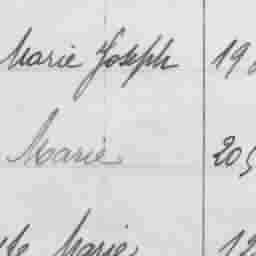 Marie Joseph 19
Marie 205
Marie 12